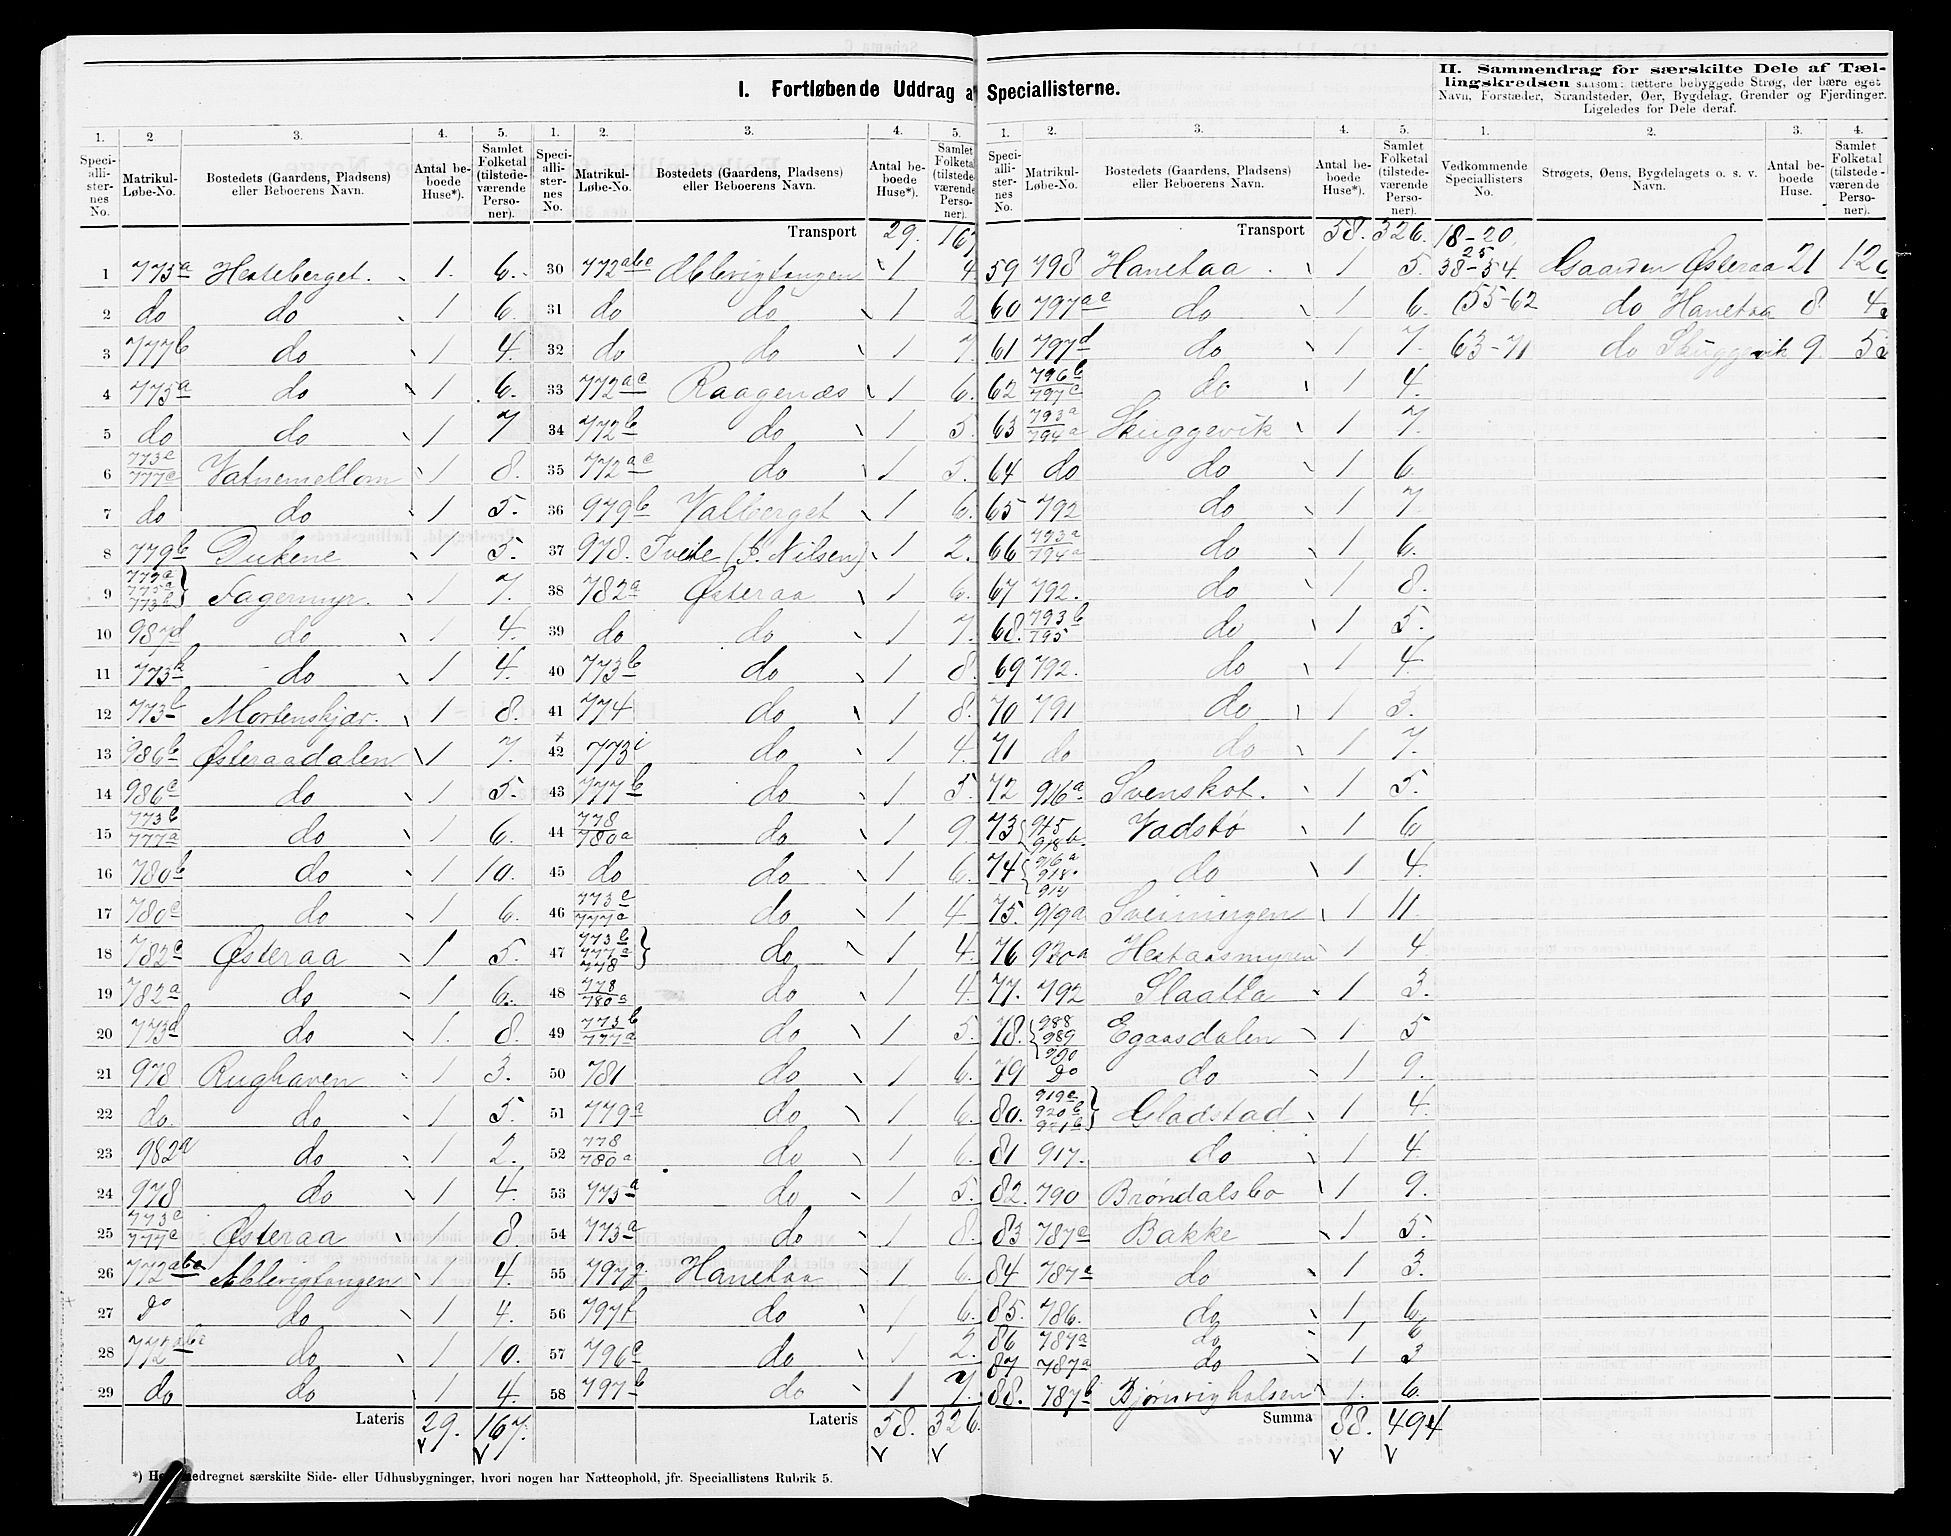 I. Fortløbende Uddrag a Speciallisterne.
II. Sammendrag for særskilte Dele af Tæl-
lingskredsen saasom: tættere bebyggede Strøg, der bære eget
Navn, Forstæder, Strandsteder, Øer, Bygdelag, Grender og Fjerdinger.
Ligeledes for Dele deraf.
1. 2 3. 4. 5.
Speciallisternes No. Matrikul-Løbe-No. Bostedets (Gaardens, Pladsens) eller Beboerens Navn. Antal beboede Huse*). Samlet Folketal (tilstedeværende Personer).
1 775a Hesteberget. 1. 6.
2 do do 1 6.
3 777b do 1 4.
4 775a do 1 6.
5 do do 1 7
6 773c 777c Vatnemellom 1 8.
7 do do 1 5.
8 779b Dukene 1 5.
9 Fagermyr. 1 7.
10 987d do 1 4.
11 773h do 1 4.
12 773b Mortenskjær. 1 8.
13 986b Østeraadalen 1 7.
14 986c do 1 5.
15 773b 777a do 1 6.
16 780b do 1 10.
17 780c do 1 6.
18 782c Østeraa 1 5.
19 782a do 1 6.
20 773d do 1. 8.
21 978 Rughaven 1 3.
22 do. do 1 5.
23 982a do 1 2.
24 978 do 1 4.
25 773c 777c Østeraa 1 8.
26 772abc Ablevigtangen 1 4.
27 Do do 1 4.
28 772abc do 1 10.
29 do do 1 4.
Lateris 29. 167.
1. 2. 3. 4. 5.
Speciallisternes No. Matrikul-Løbe-No. Bostedets (Gaardens, Pladsens) eller Beboerens Navn. Antal beboede Huse*). Samlet Folketal (tilstedeværende Personer).
Transport 29. 167
30 772abc Ablevigtangen 1 4
31 do do 1 2
32 do do 1 7
33 772ac Raagenæs 1 6.
34 772b do 1 5.
35 772ac do 1 5.
36 979b Valberget 1 6.
37 978. Tveite (J. Nilsen) 1 2.
38 782a Østeraa 1 6.
39 do do 1 7.
40 773b do 1 8.
41 774 do 1 8.
42 773i do 1 4.
43 777b do 1 5.
44 778 780a do 1 9.
45 do do 1 6.
46 773c 777a do 1 4
47 773b 777a 778 do 1 4.
48 778 780a do 1 4.
49 773b 777a do 1 5.
50 781 do 1 6.
51 779a do 1 6.
52 778 780a do 1 6.
53 775a do 1 5.
54 773a do 1 8.
55 797g. Hanetaa 1 6.
56 797f do 1 6.
57 796c do 1 2.
58 797b do 1 7.
Lateris 58. 326.
1. 2. 3. 4. 5.
Speciallisternes No. Matrikul-Løbe-No. Bostedets (Gaardens, Pladsens) eller Beboerens Navn. Antal beboede Huse*). Samlet Folketal (tilstedeværende Personer).
Transport 58. 326.
59 798 Hanetaa. 1 5.
60 797ae do 1 6.
61 797d do 1 7.
62 796b 797c do 1 4.
63 793a 794a Skuggevik 1 7.
64 do do 1 6.
65 792 do 1 7.
66 793a 794a do 1 6.
67 792. do 1 8.
68. 793b 795 do 1 5.
69 792. do 1 4.
70 791 do 1 3.
71 do do 1 7.
72 916a Svenskot. 1 5.
73 915 918b Vadsbo 1 6
74 916a 918 914 do 1 4.
75. 919a Sveiningen 1 11.
76 920a Hestaasmyren 1 4.
77. 792 Slaatta 1 3.
78. 988 989 990 Egaasdalen 1 5
79 Do do 1 9.
80. 919c 920b 921b Gladstad 1 4.
81 917. do 1 4.
82. 790 Brøndalsbo 1 9.
83 787c Bakke 1 5.
84 787c do 1 3.
85. 786. do 1 6.
86 787a do 1 6
87 787a do 1 3
88. 787b Bjørnvigholsen 1. 6.
Summa 88. 494
1. 2. 3. 4.
Vedkommende Speciallisters No. Strøgets, Øens, Bygdelagets o. s. v. Navn. Antal beboede Huse. Samlet Folketal (tilstedeværende Personer).
18-20. 25 38-54. Gaarden Østeraa 21 12
55-62 do Hanetaa 8. 4
63-71 do Skuggevik 9. 5
*) Her medregnet særskilte Side- eller Udhusbygninger, hvori nogen har Natteophold, jfr. Speciallistens Rubrik 5.